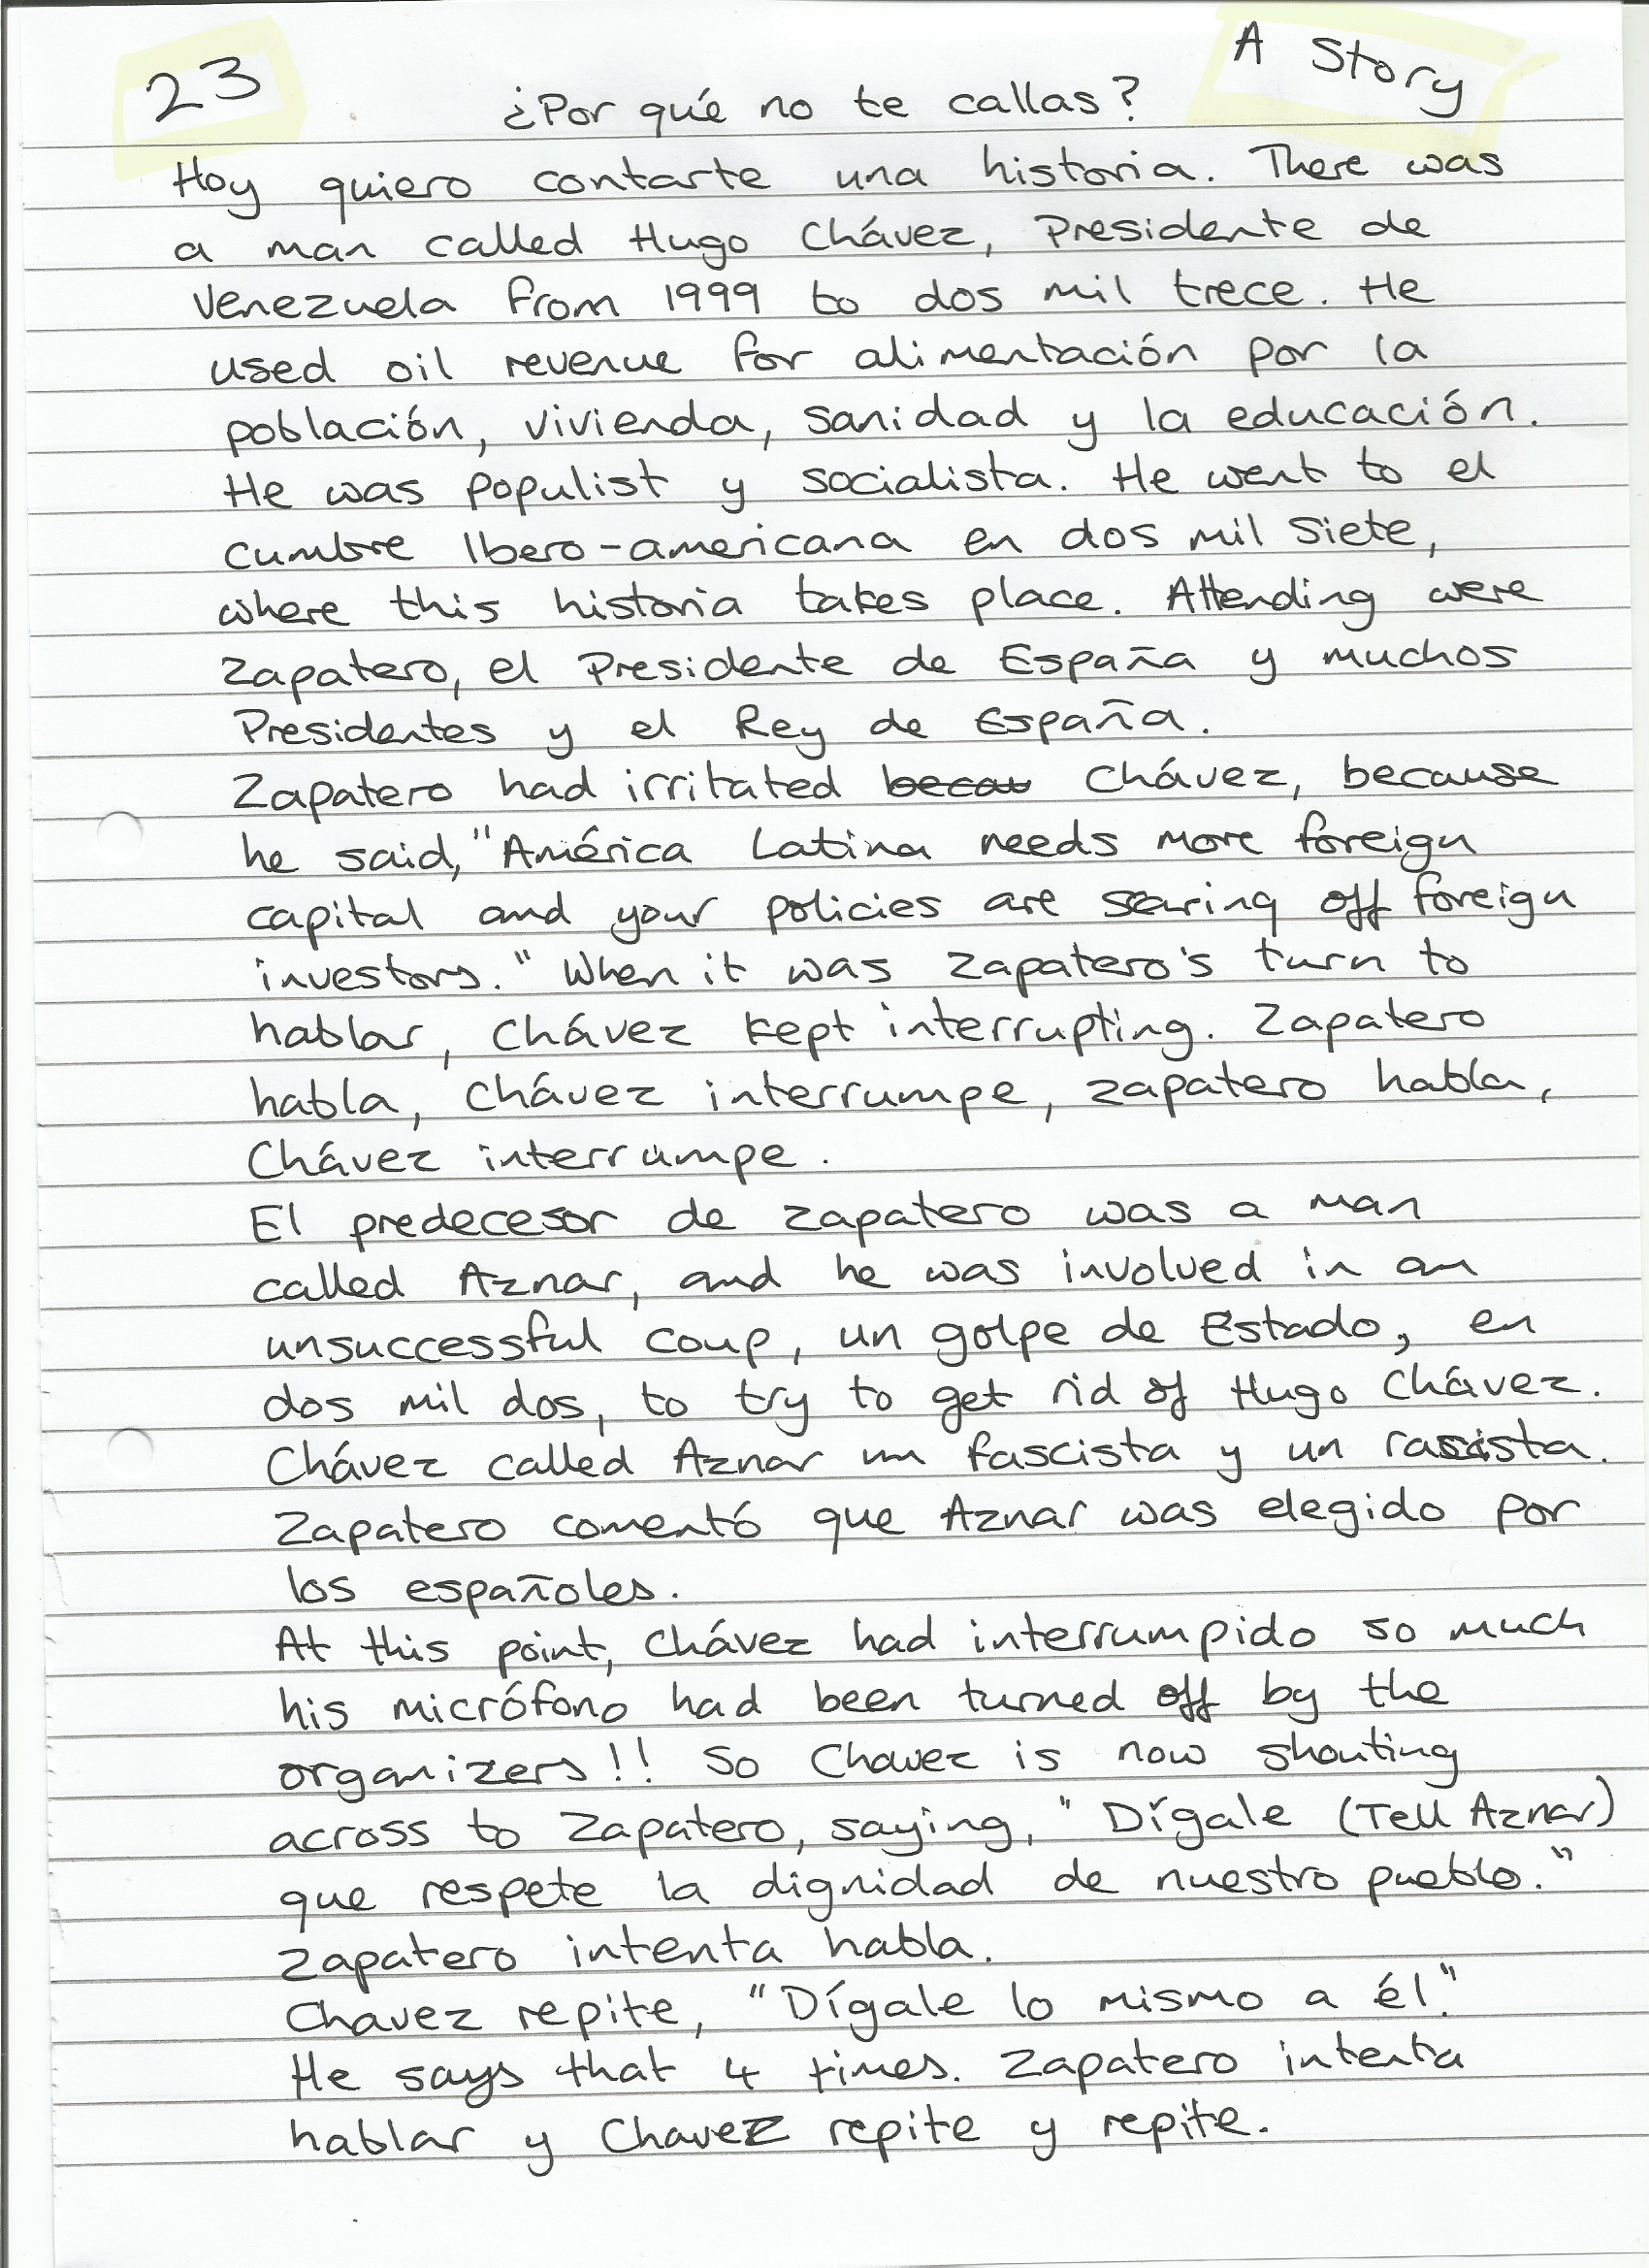 23
A Story
¿Por qué no te callas?
Hoy quiero contarte una historia. There was
a man called Hugo Chávez, Presidente de
Venezuela from 1999 to dos mil trece. He
used oil revenue for alimentación por la
población, vivienda, sanidad y la educación.
He was populist y socialista. He went to el
cumbre Ibero-americana en dos mil siete,
where this historia takes place. Attending were
Zapatero, el Presidente de España y muchos
Presidentes y el Rey de España.
Zapatero had irritated becau Chávez, because
he said, "América Latina needs more foreign
capital and your policies are scaring off foreign
investors." When it was Zapatero's turn to
hablar, Chávez kept interrupting. Zapatero
habla, Chávez interrumpe, Zapatero habla,
Chávez interrumpe.
El predecesor de Zapatero was a man
called Aznar, and he was involved in an
unsuccessful coup, un golpe de Estado, en
dos mil dos, to try to get rid of Hugo Chávez.
Chávez called Aznar un fascista y un rasista.
Zapatero comentó que Aznar was elegido por
los españoles.
At this point, Chávez had interrumpido so much
his micrófono had been turned off by the
organizers!! So Chavez is now shouting
across to Zapatero, saying, "Dígale (Tell Aznar)
que respete la dignidad de nuestro pueblo."
Zapatero intenta habla.
Chavez repite, "Dígale lo mismo a él."
He says that 4 times. Zapatero intenta
hablar y Chavez repite y repite.